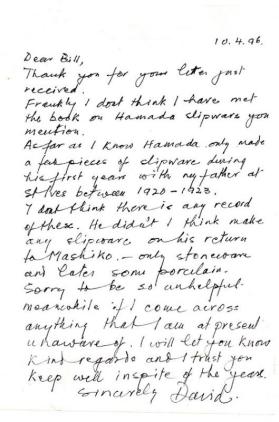 10.4.96.
Dear Bill,
Thank you for your letter just
received.
Frankly I dont think I have met
the book on Hamada slipware you
mention.
As far as I know Hamada only made
a few pieces of slipware during
his first years with my father at
St Ives between 1920-1923.
I dont think there is any record
of these. He didn't I think make
any slipware on his return
to Mashiko. - only stoneware
and later some porcelain.
Sorry to be so unhelpful
meanwhile if I come across
anything that I am at present
unaware of. I will let you know
Kind regards and I trust you
keep well inspite of the years.
Sincerely David.